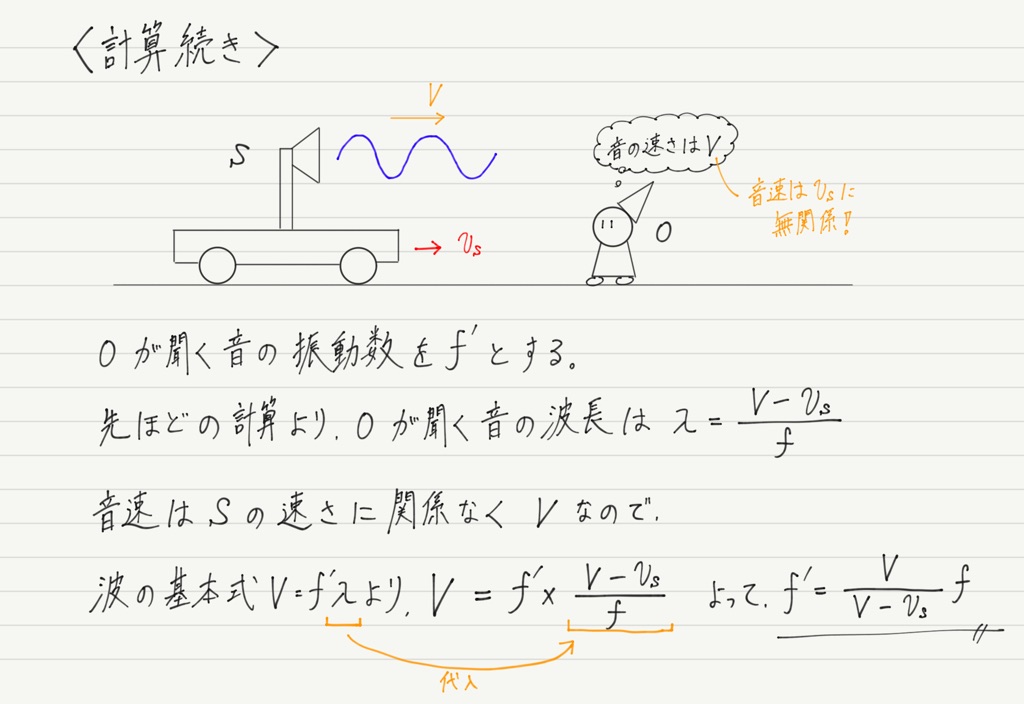 〈計算続き〉
V
S
音の速さはV
音速はvsに
無関係!
O
vs
Oが聞く音の振動数をf'とする。
先ほどの計算より、Oが聞く音の波長は λ = (V - vs)/f
音速はSの速さに関係なくVなので、
波の基本式V=f'λより、V = f' × (V - vs)/f よって、f' = V/(V - vs) f
代入